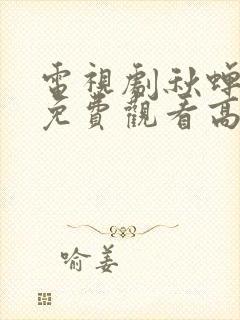 電視劇秋蟬
免費觀看高
喻姜